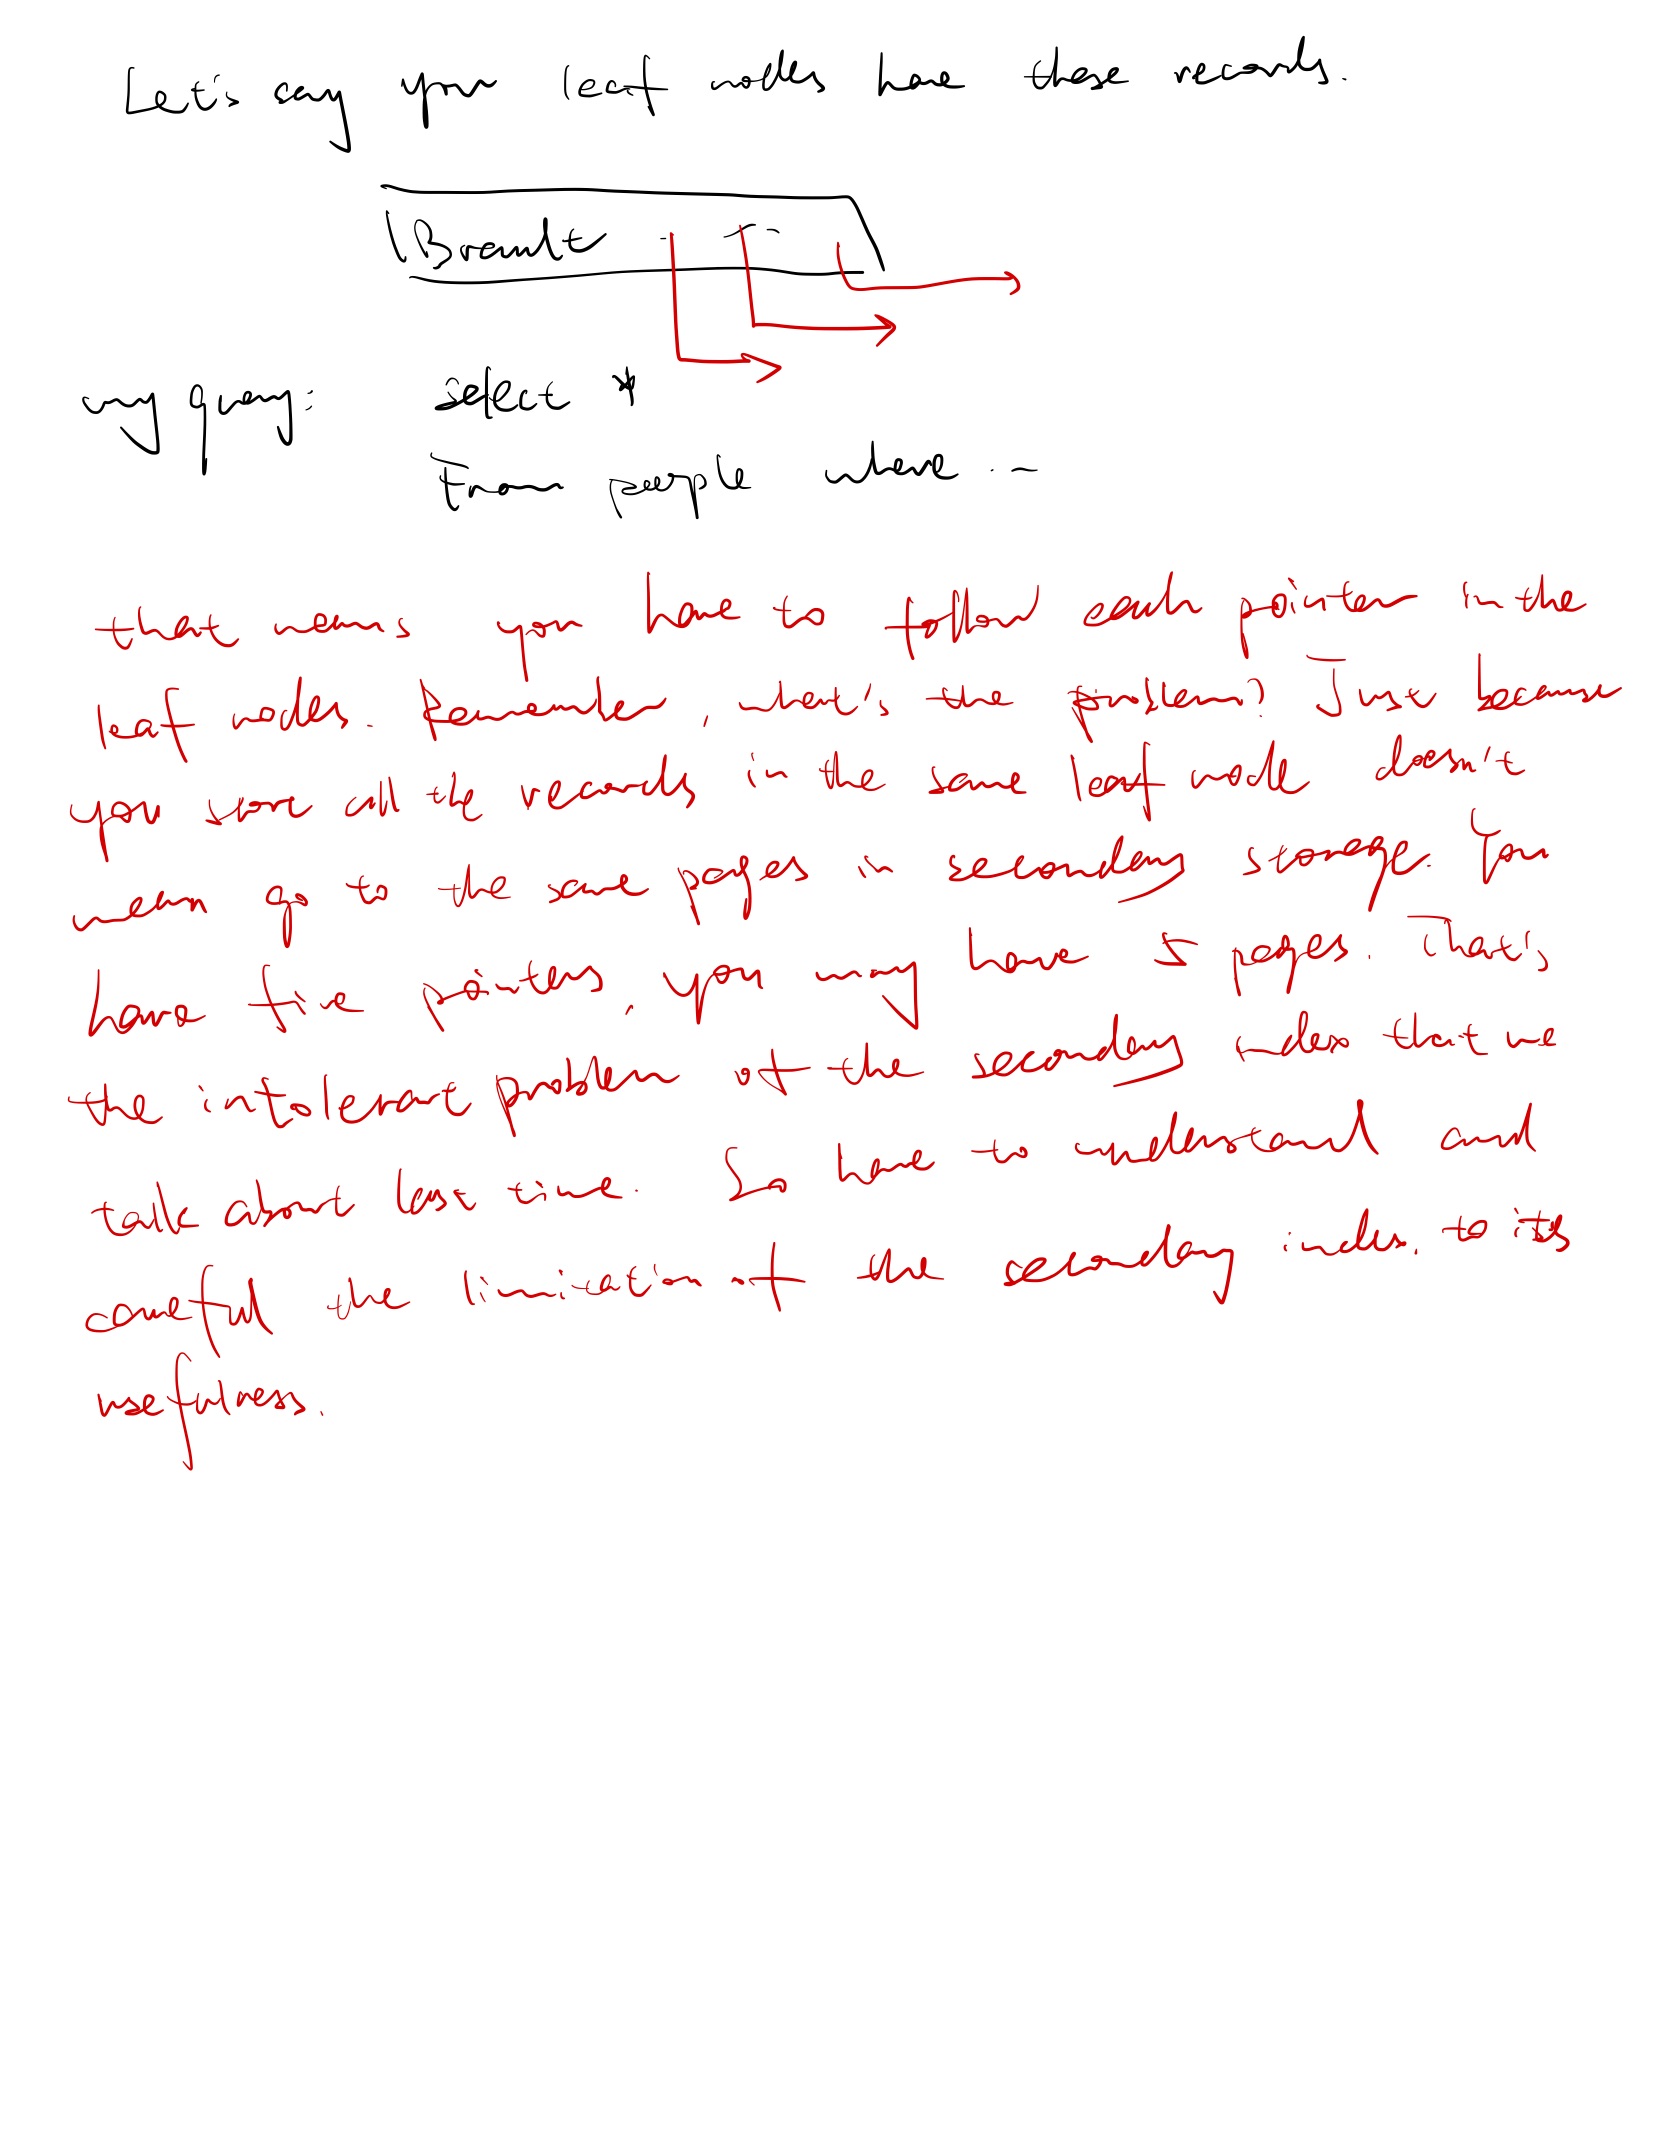 Let's say your leaf nodes have these records.
Brandt . - - -
my query: select *
From people where . . -
that means you have to follow each pointer in the
leaf nodes. Remember, what's the problem? Just because
you store all the records in the same leaf node doesn't
mean go to the same pages in secondary storage. You
have five pointers, you may have 5 pages. That's
the intolerant problem of the secondary index that we
talk about last time. So have to understand and
careful the limitation of the secondary index. to its
usefulness.